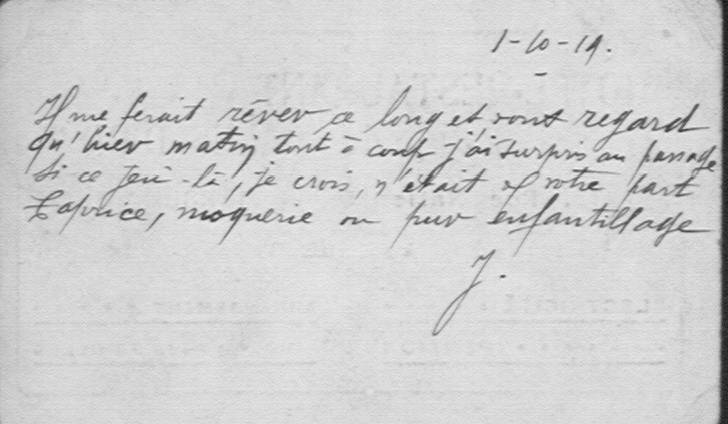 1-10-19.
Il me ferait rêver ce long et regard
qu'hier matin tout à coup j'ai surpris au passage
Si ce jeu-là, je crois, n'était d votre part
Caprice, moquerie ou pur enfantillage
J.